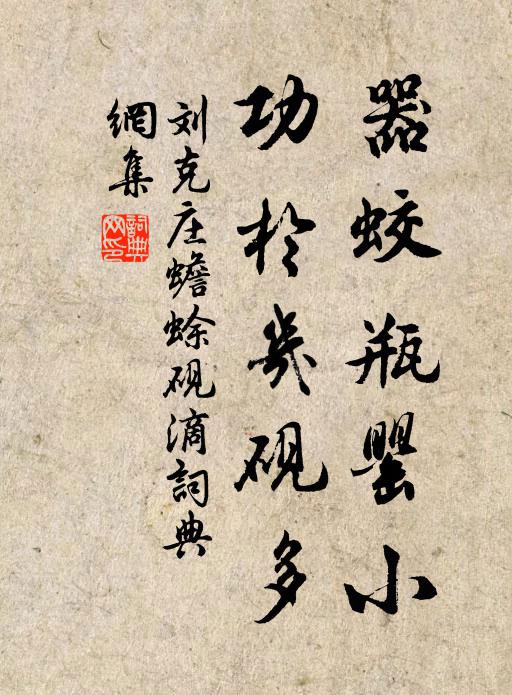 器蛟瓶罂小
功於几砚多
刘克庄蟾蜍砚滴詞典
網集
詞典
网印